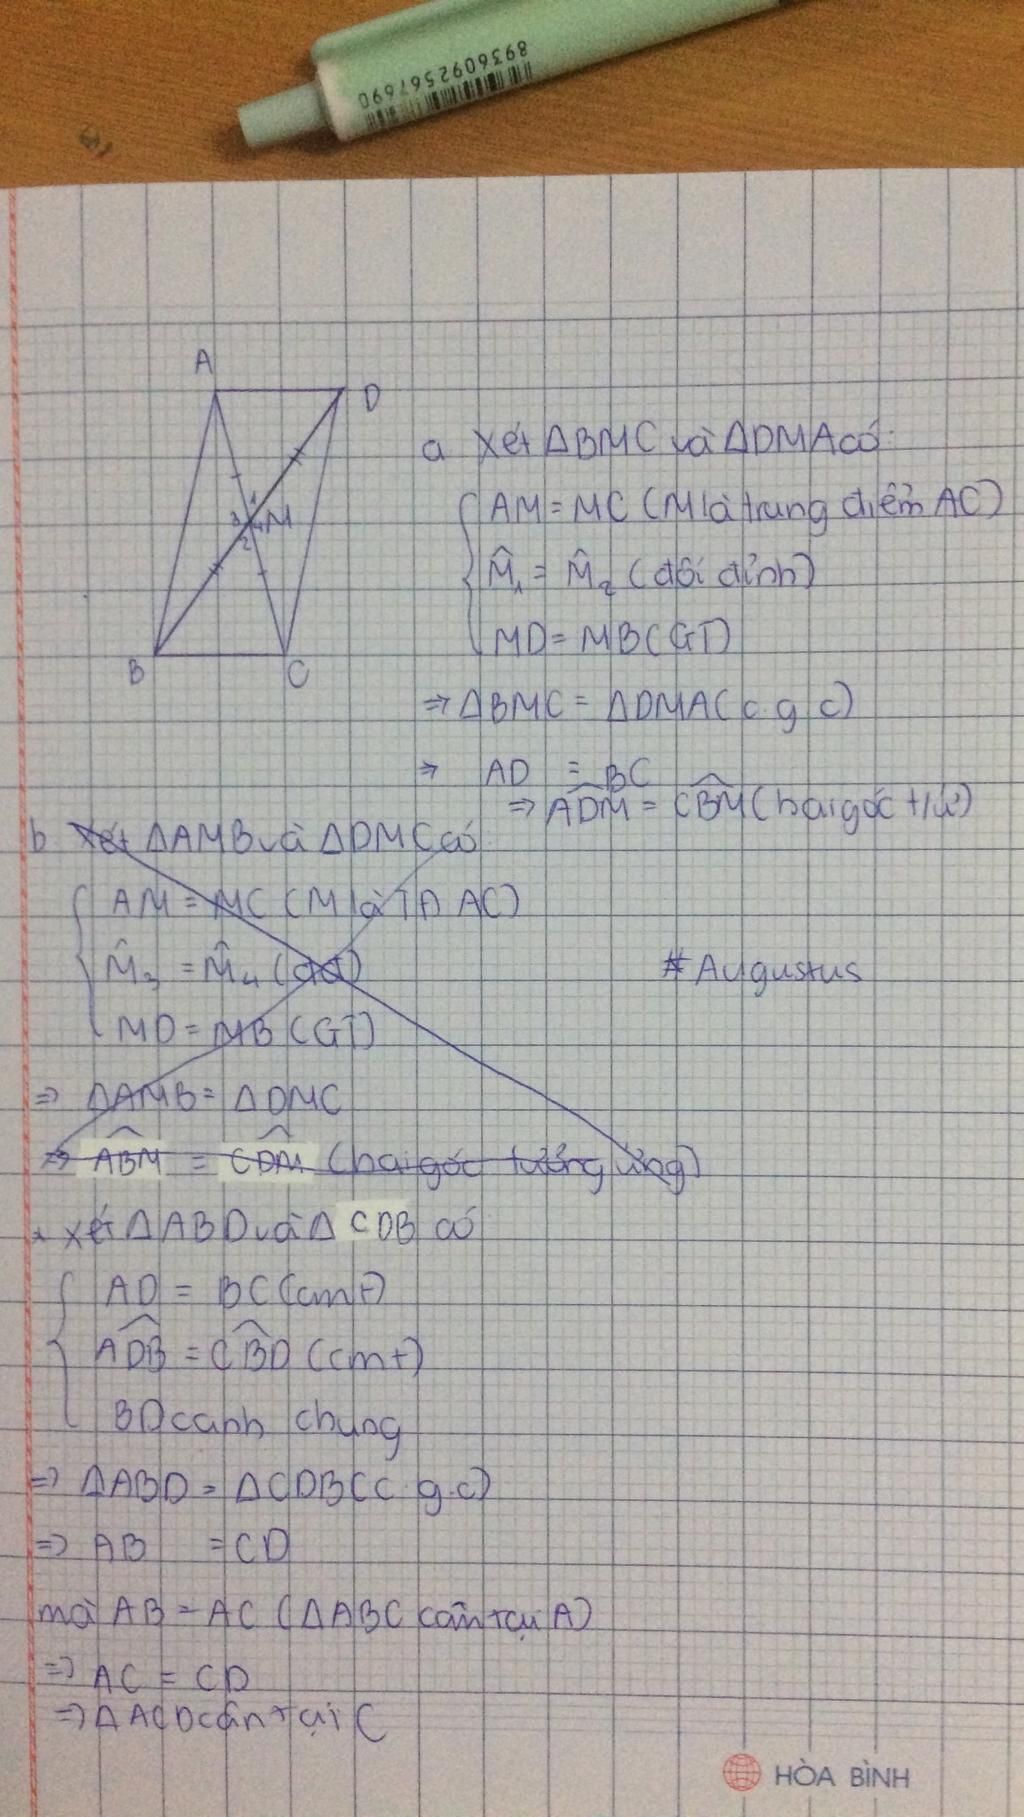 8936092567690
A
D
a Xét ΔBMC và ΔDMA có:
AM = MC (M là trung điểm AC)
1
3 4 M
2
M̂₁ = M̂₂ (đối đỉnh)
MD = MB (GT)
B
C
⇒ ΔBMC = ΔDMA (c g c)
⇒ AD = BC
⇒ ADM = CBM (hai góc t/ứ)
b Xét ΔAMB và ΔDMC có
AM = MC (M là TĐ AC)
M̂₃ = M̂₄ (đđ)
# Augustus
MD = MB (GT)
⇒ ΔAMB = ΔDMC
⇒ ABM = CDM (hai góc tương ứng)
* xét ΔABD và Δ CDB có
AD = BC (cmt)
ADB = CBD (cmt)
BD cạnh chung
⇒ ΔABD = ΔCDB (c.g.c)
⇒ AB = CD
mà AB = AC (ΔABC cân tại A)
⇒ AC = CD
⇒ ΔACD cân tại C
HÒA BÌNH